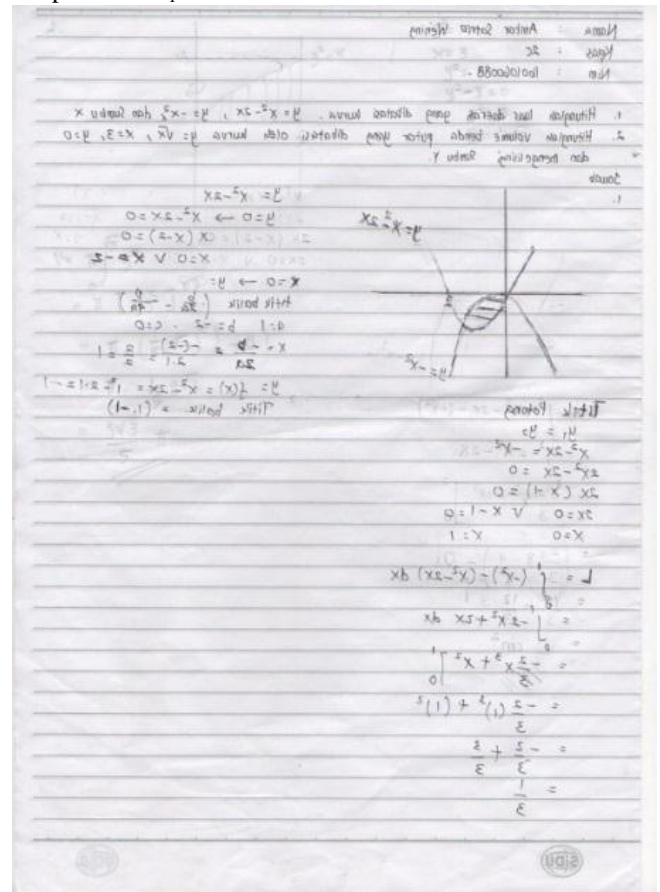 Nama :
Kelas : 2C
Nim : 1001060088
1. Hitunglah luas daerah yang dibatasi kurva. y = x²-2x, y = -x², dan sumbu x
2. Hitunglah volume benda putar yang dibatasi oleh kurva y = √x, x = 3, y = 0
dan mengelilingi sumbu Y
Jawab
1.
y = x²-2x
y = -x²
-2
y = x²-2x
y=0 → x²-2x=0
x(x-2)=0
x=0 V x=-2
x=0 → y=
titik balik (b/2a - D/4a)
a=1 b=-2 c=0
x = -b/2a = -(-2)/2.1 = 2/2 = 1
y = f(x) = x²-2x = 1²-2.1 = -1
Titik balik = (1,-1)
Titik Potong
y₁ = y₂
x²-2x = -x²
2x²-2x = 0
2x (x-1) = 0
2x=0 V x-1=0
x=0 x=1
L = ∫₀¹ (-x²)-(x²-2x) dx
= ∫₀¹ -2x²+2x dx
= -2/3 x³ + x² ]₀¹
= -2/3 (1)³ + (1)²
= -2/3 + 3/3
= 1/3
SIDU